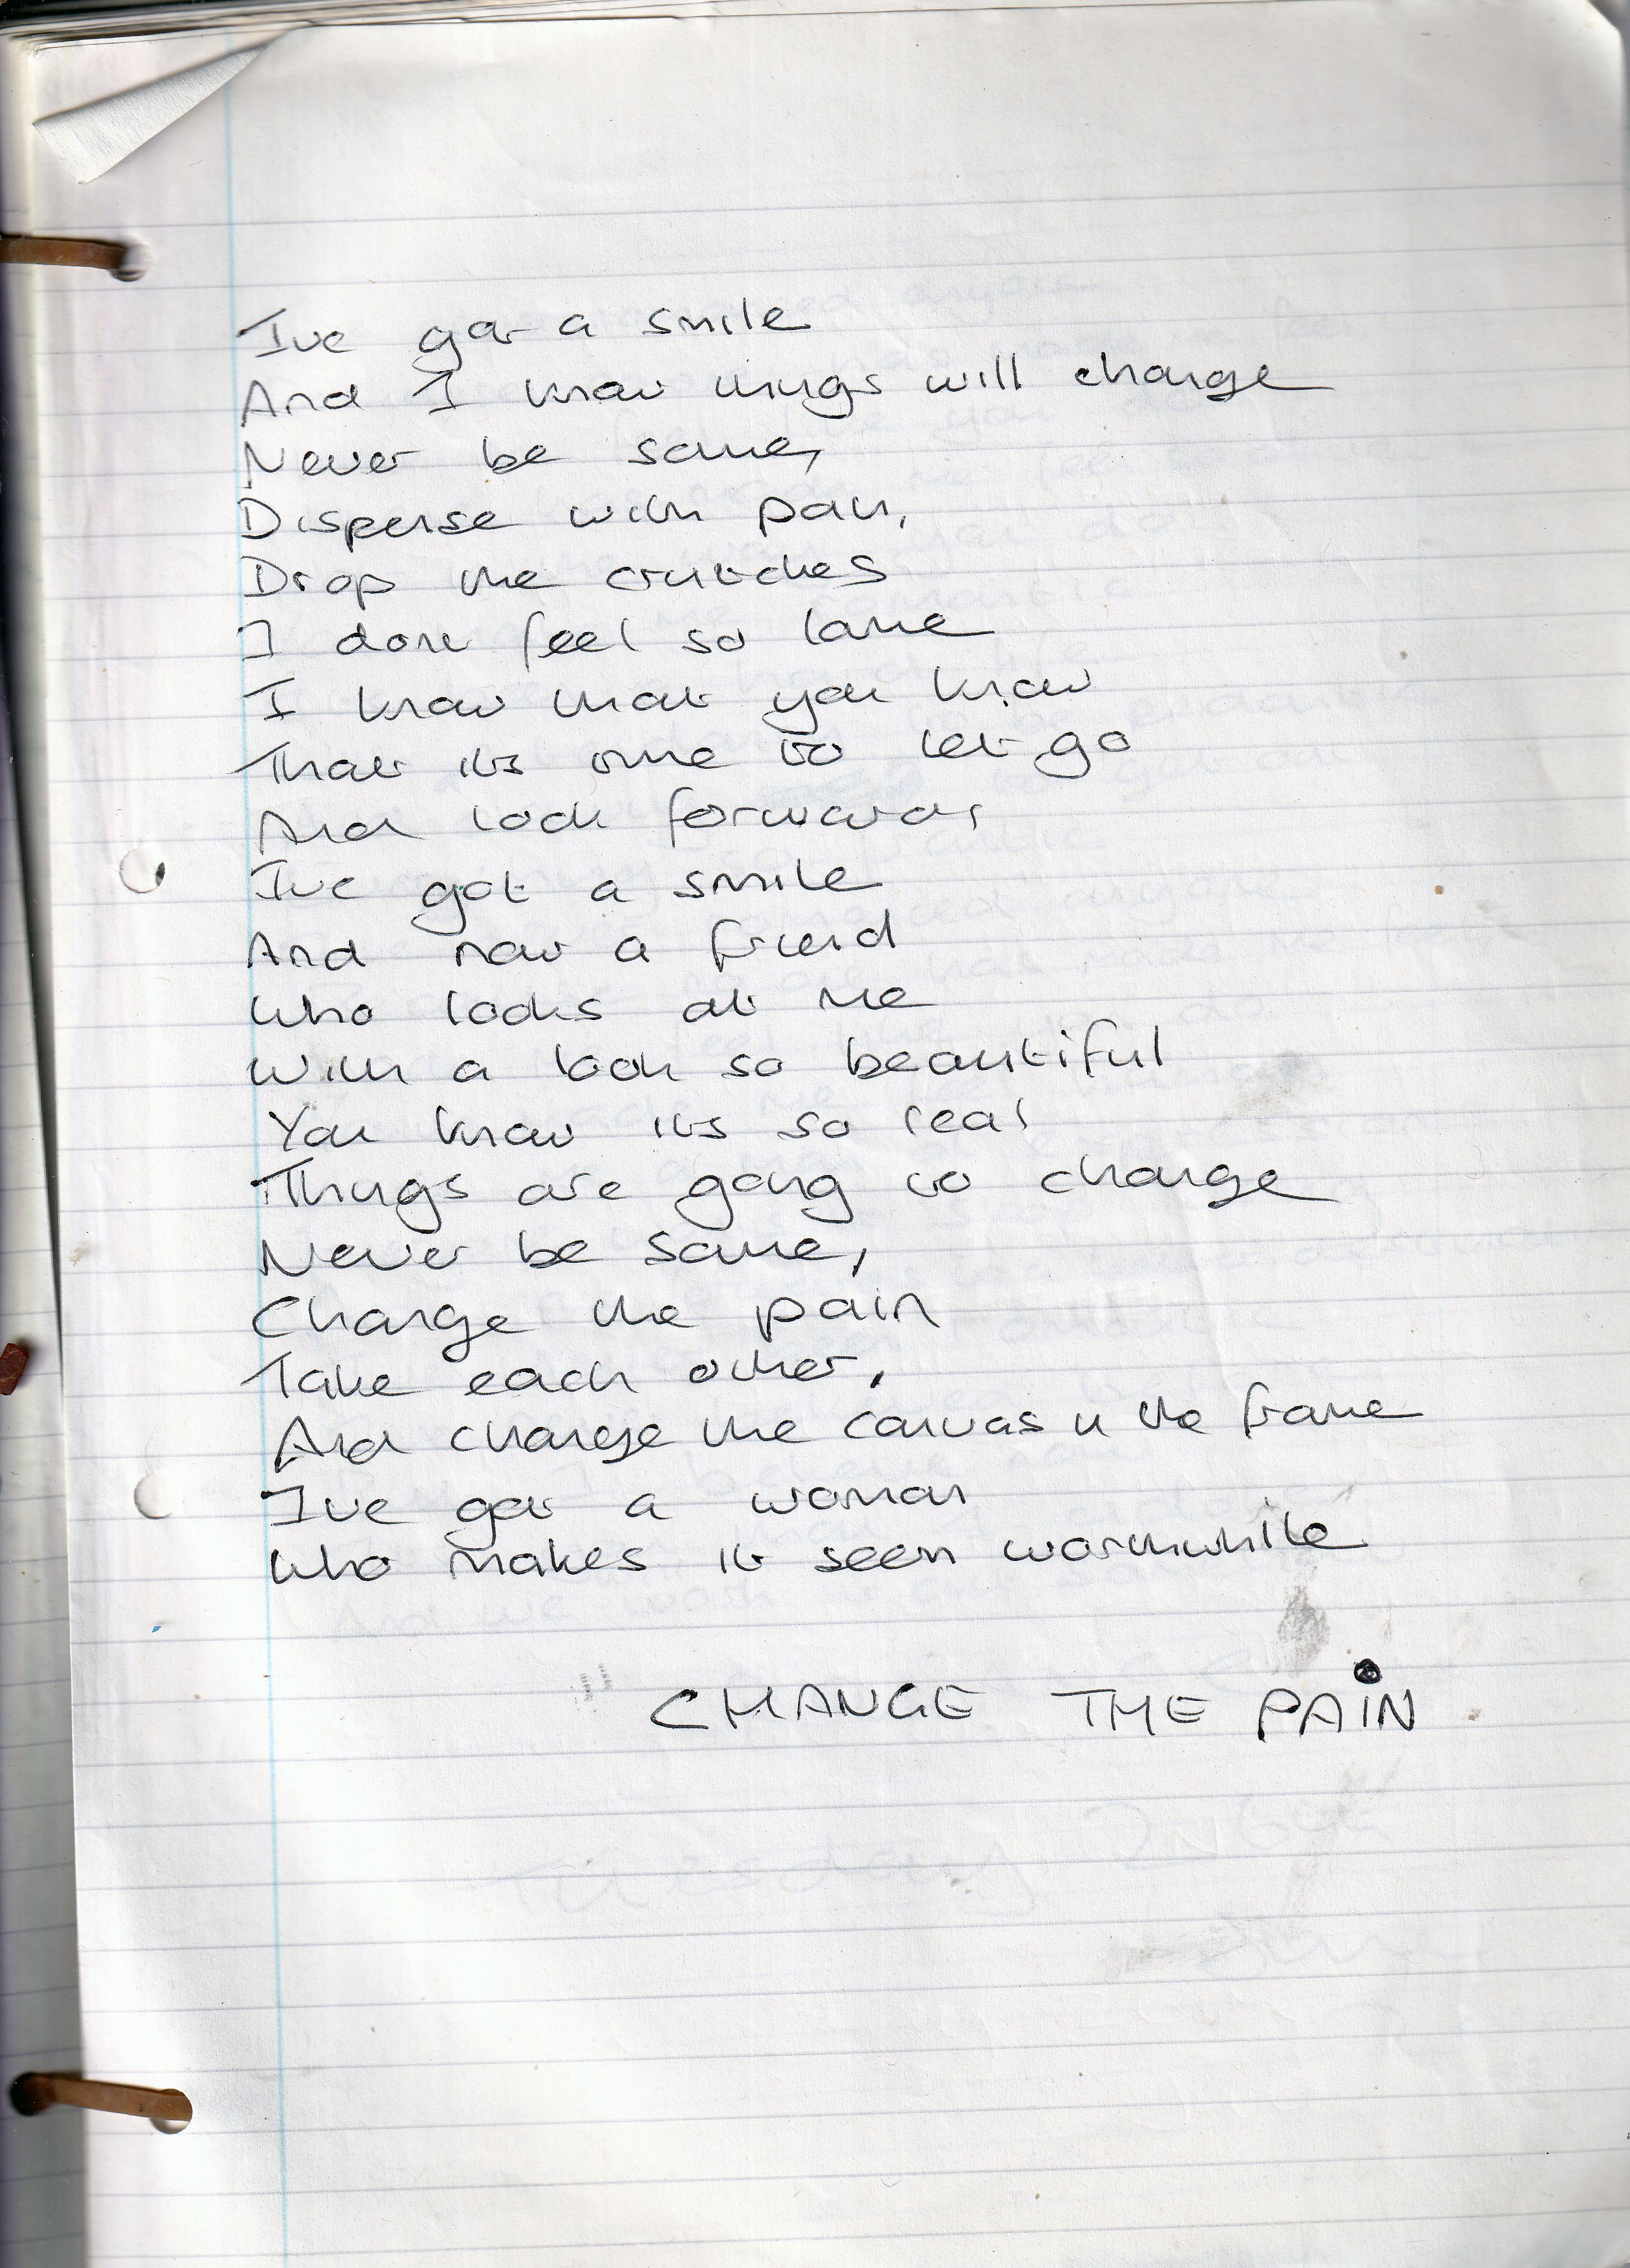 Ive got a smile
And I know things will change
Never be same,
Disperse with pain,
Drop the crutches
I dont feel so lame
I know that you know
That its time to let go
And look forward,
Ive got a smile
And now a friend
Who looks at me
With a look so beautiful
You know its so real
Things are going to change
Never be same,
Change the pain
Take each other,
And change the canvas n the frame
Ive got a woman
Who makes it seem worthwhile
CHANGE THE PAiN